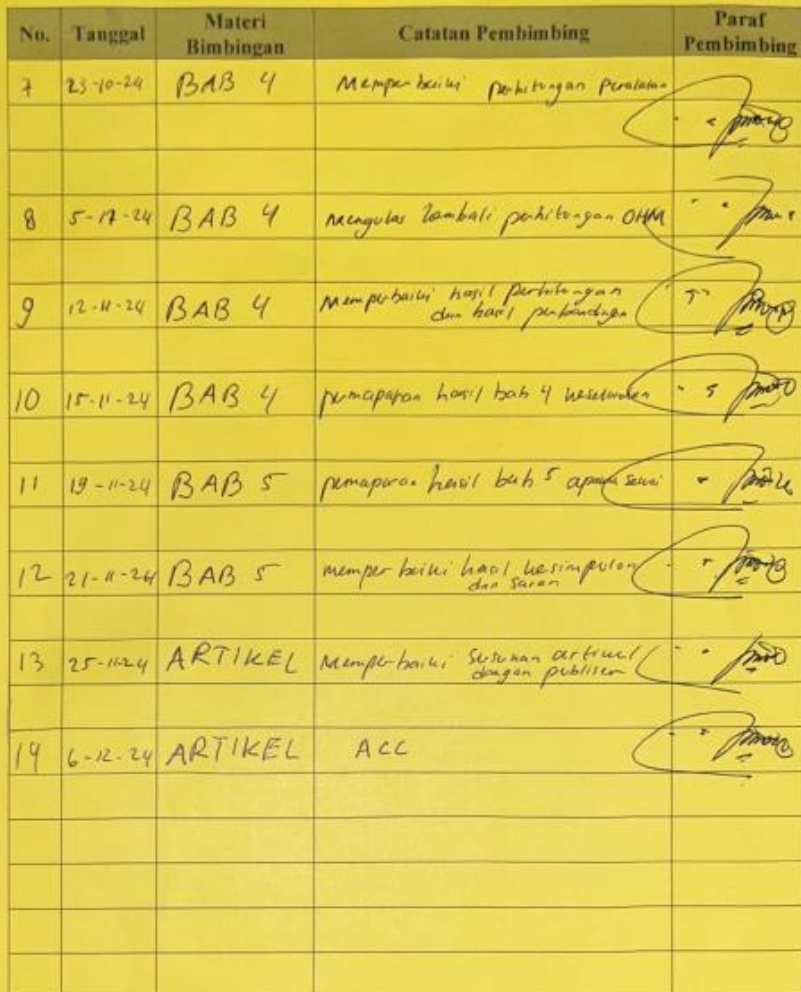 No. Tanggal Materi Bimbingan Catatan Pembimbing Paraf Pembimbing
7 23-10-24 BAB 4 Memperbaiki perhitungan Peralatan
8 5-11-24 BAB 4 mengulas kembali perhitungan OHM
9 12-11-24 BAB 4 memperbaiki hasil perhitungan
dan hasil perbandingan
10 15-11-24 BAB 4 pemaparan hasil bab 4 keseluruhan
11 19-11-24 BAB 5 pemaparan hasil bab 5 sesuai
12 21-11-24 BAB 5 memperbaiki hasil kesimpulan
dan saran
13 25-11-24 ARTIKEL Memperbaiki susunan artikel
dengan publiser
14 6-12-24 ARTIKEL ACC